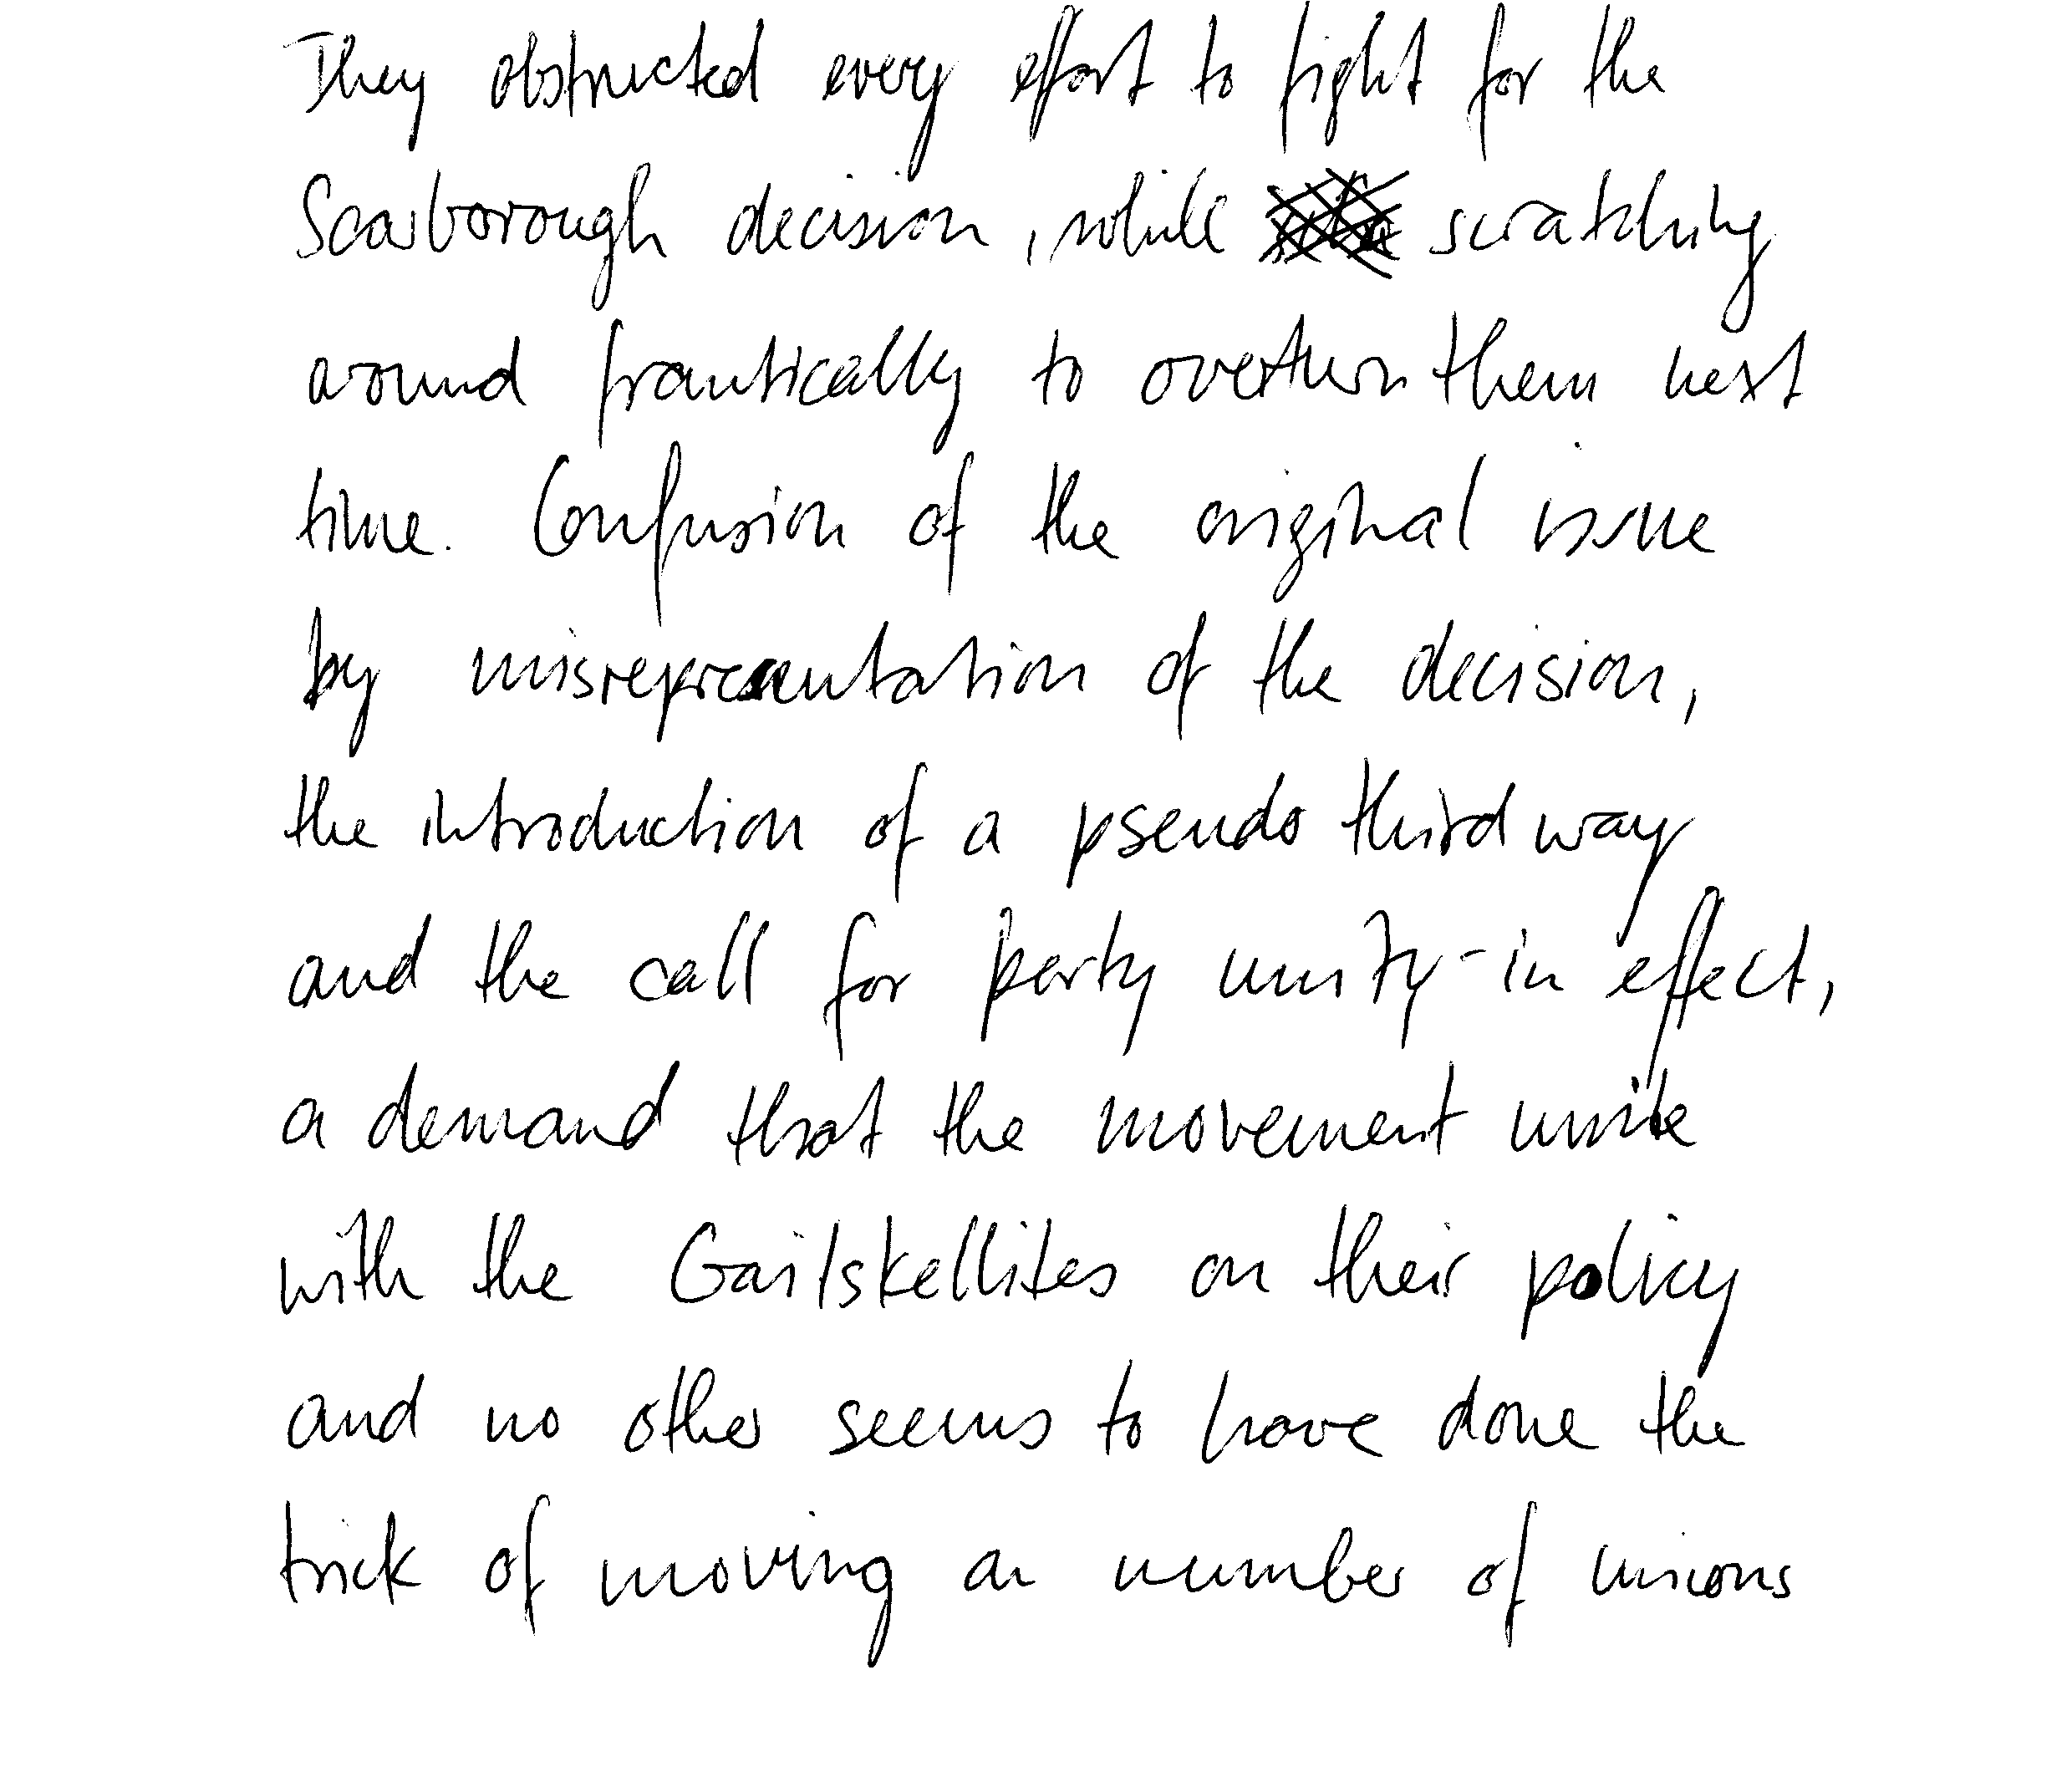 They obstructed every effort to fight for the
Scarborough decision, while scratching
around frantically to overturn them next
time. Confusion of the original issue
by misrepresentation of the decision,
the introduction of a pseudo third way
and the call for party unity - in effect,
a demand that the movement unite
with the Gaitskellites on their policy
and no other seems to have done the
trick of moving a number of unions